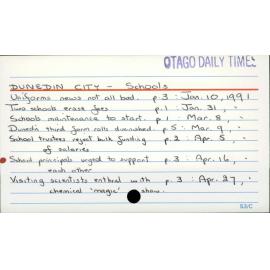 OTAGO DAILY TIMES
DUNEDIN CITY - Schools
Uniforms news not all bad. p 3 : Jan. 10, 1991
Two schools erase fees. p. 1 : Jan. 31, "
Schools maintenance to start. p 1 : Mar. 8, "
Dunedin third form rolls diminished. p 5 : Mar. 9, "
School trustees reject bulk funding p 2 : Apr. 5, "
of salaries
School principals urged to support p 3 : Apr. 16, "
each other
Visiting scientists enthral with p. 3 : Apr. 27, "
chemical 'magic' show.
53/C